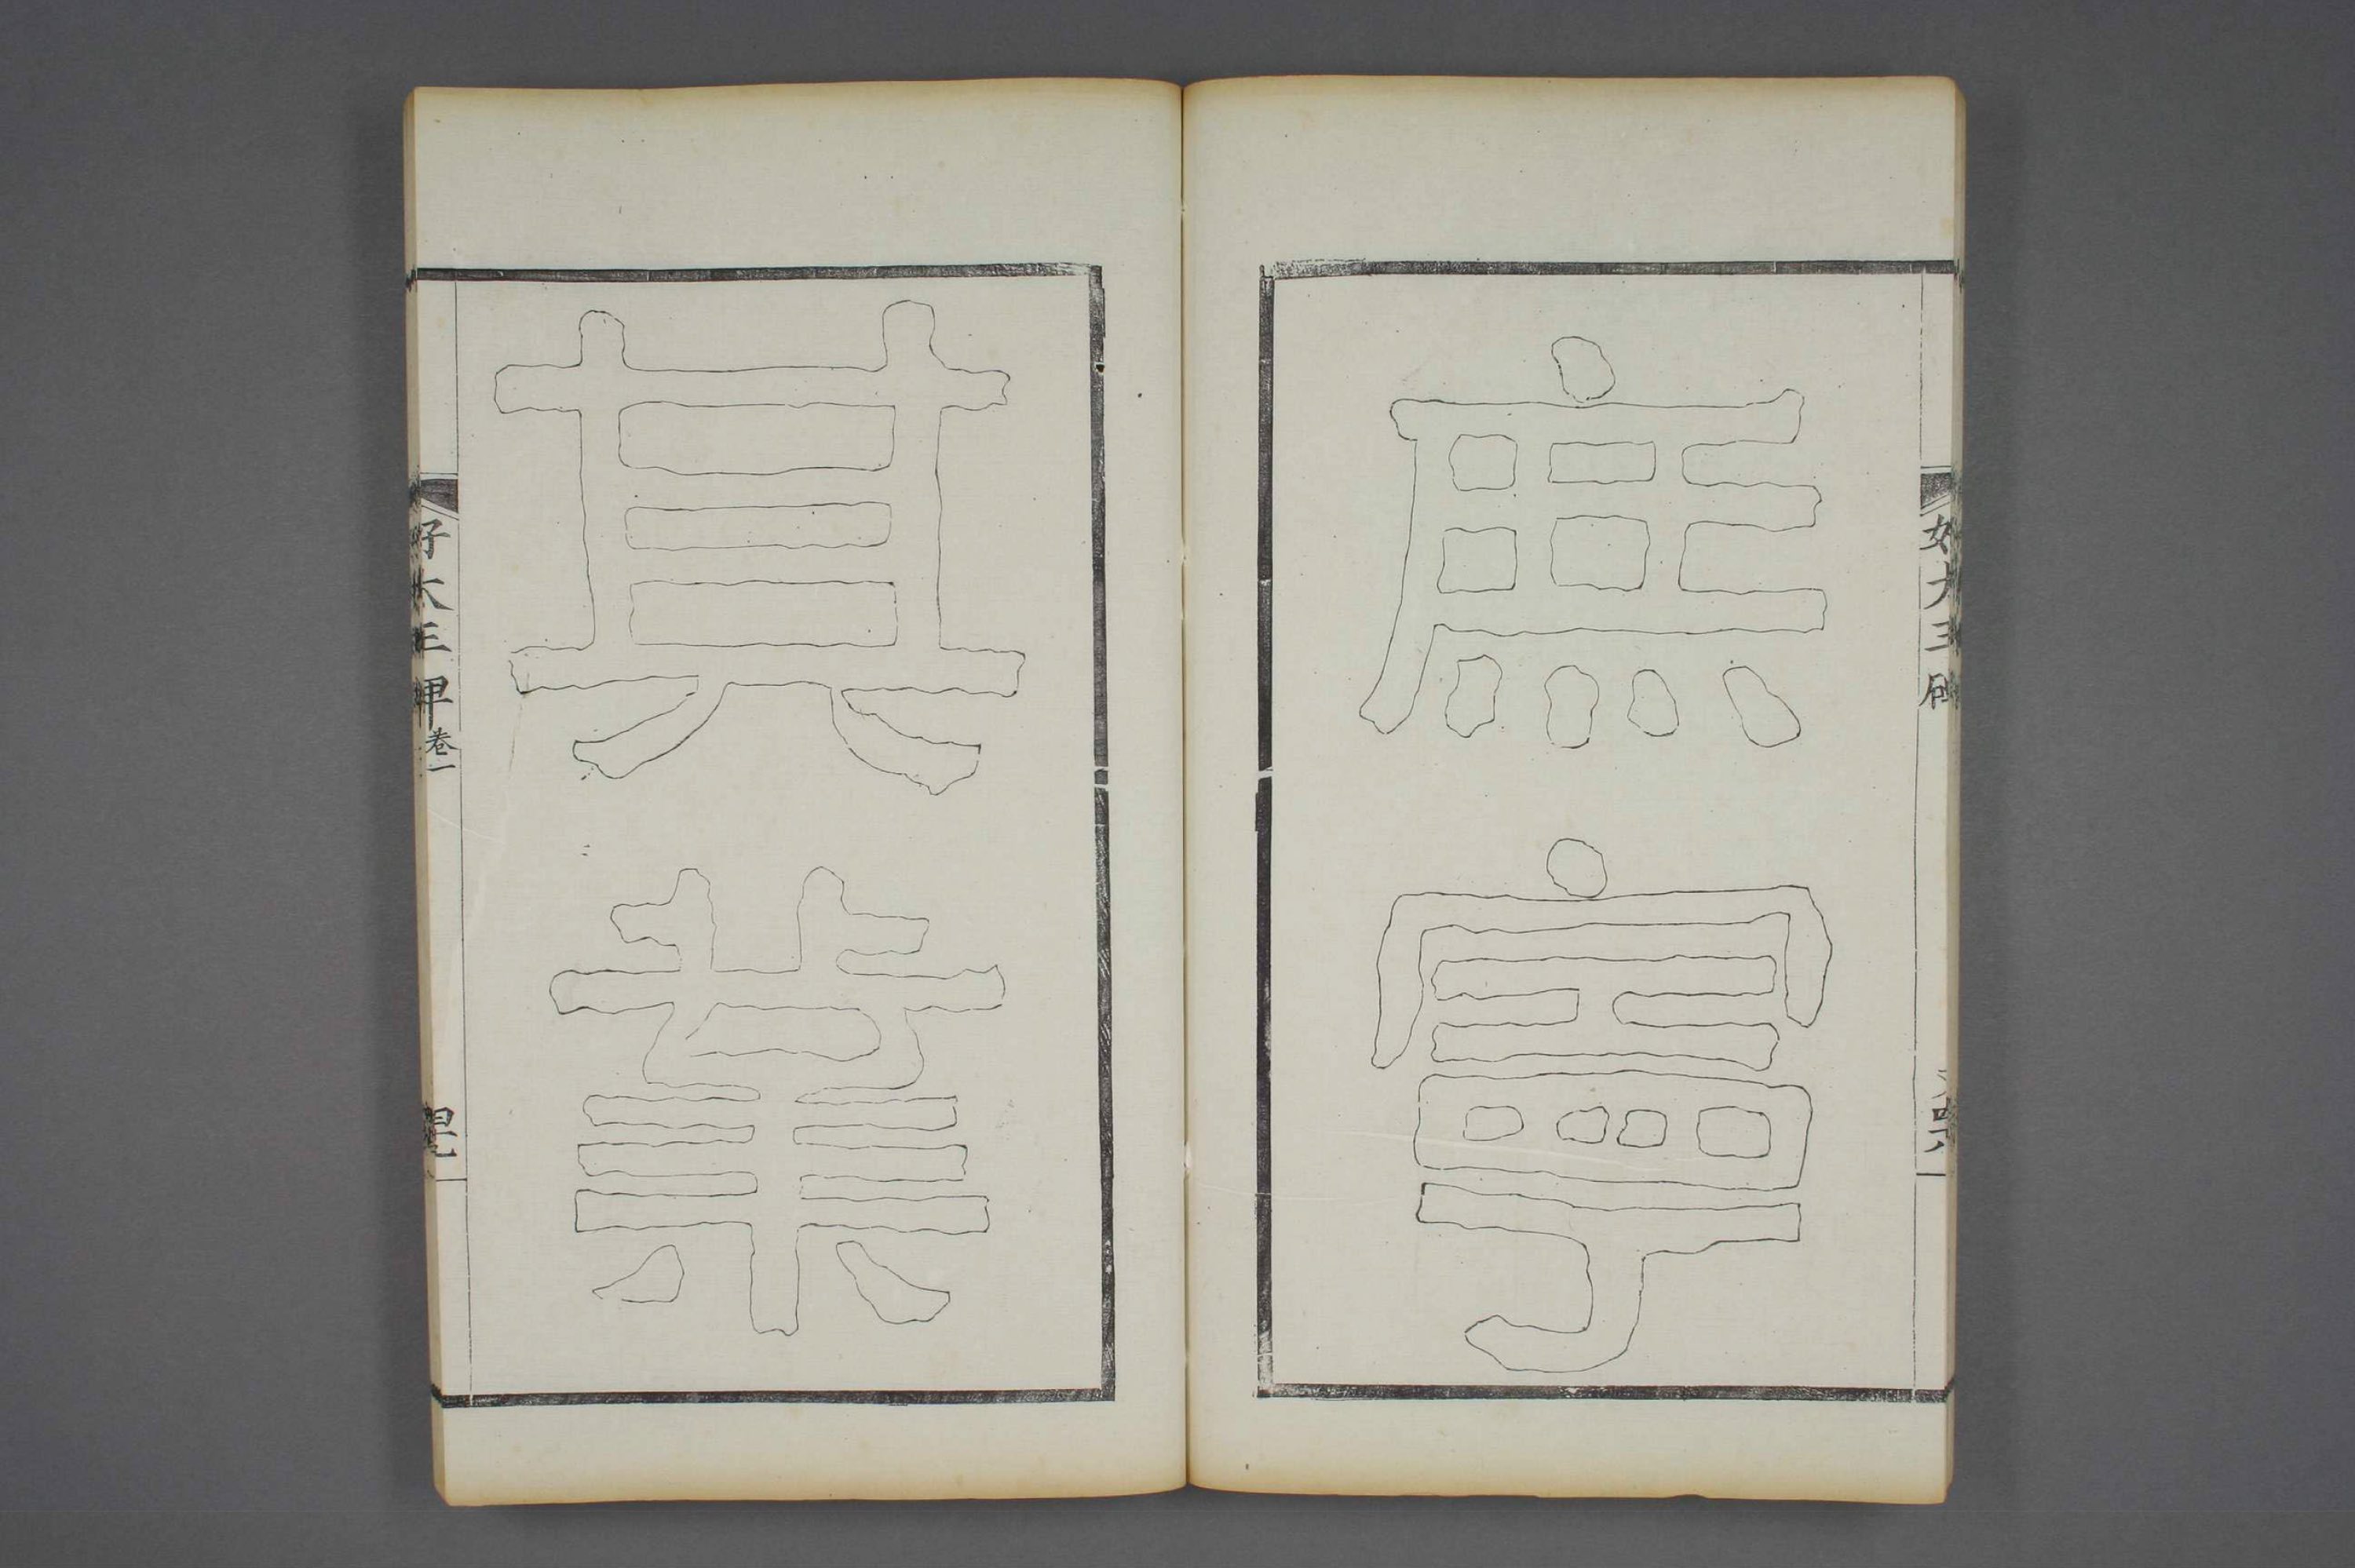 庶寧
好大王碑
其業
好大王碑 卷一